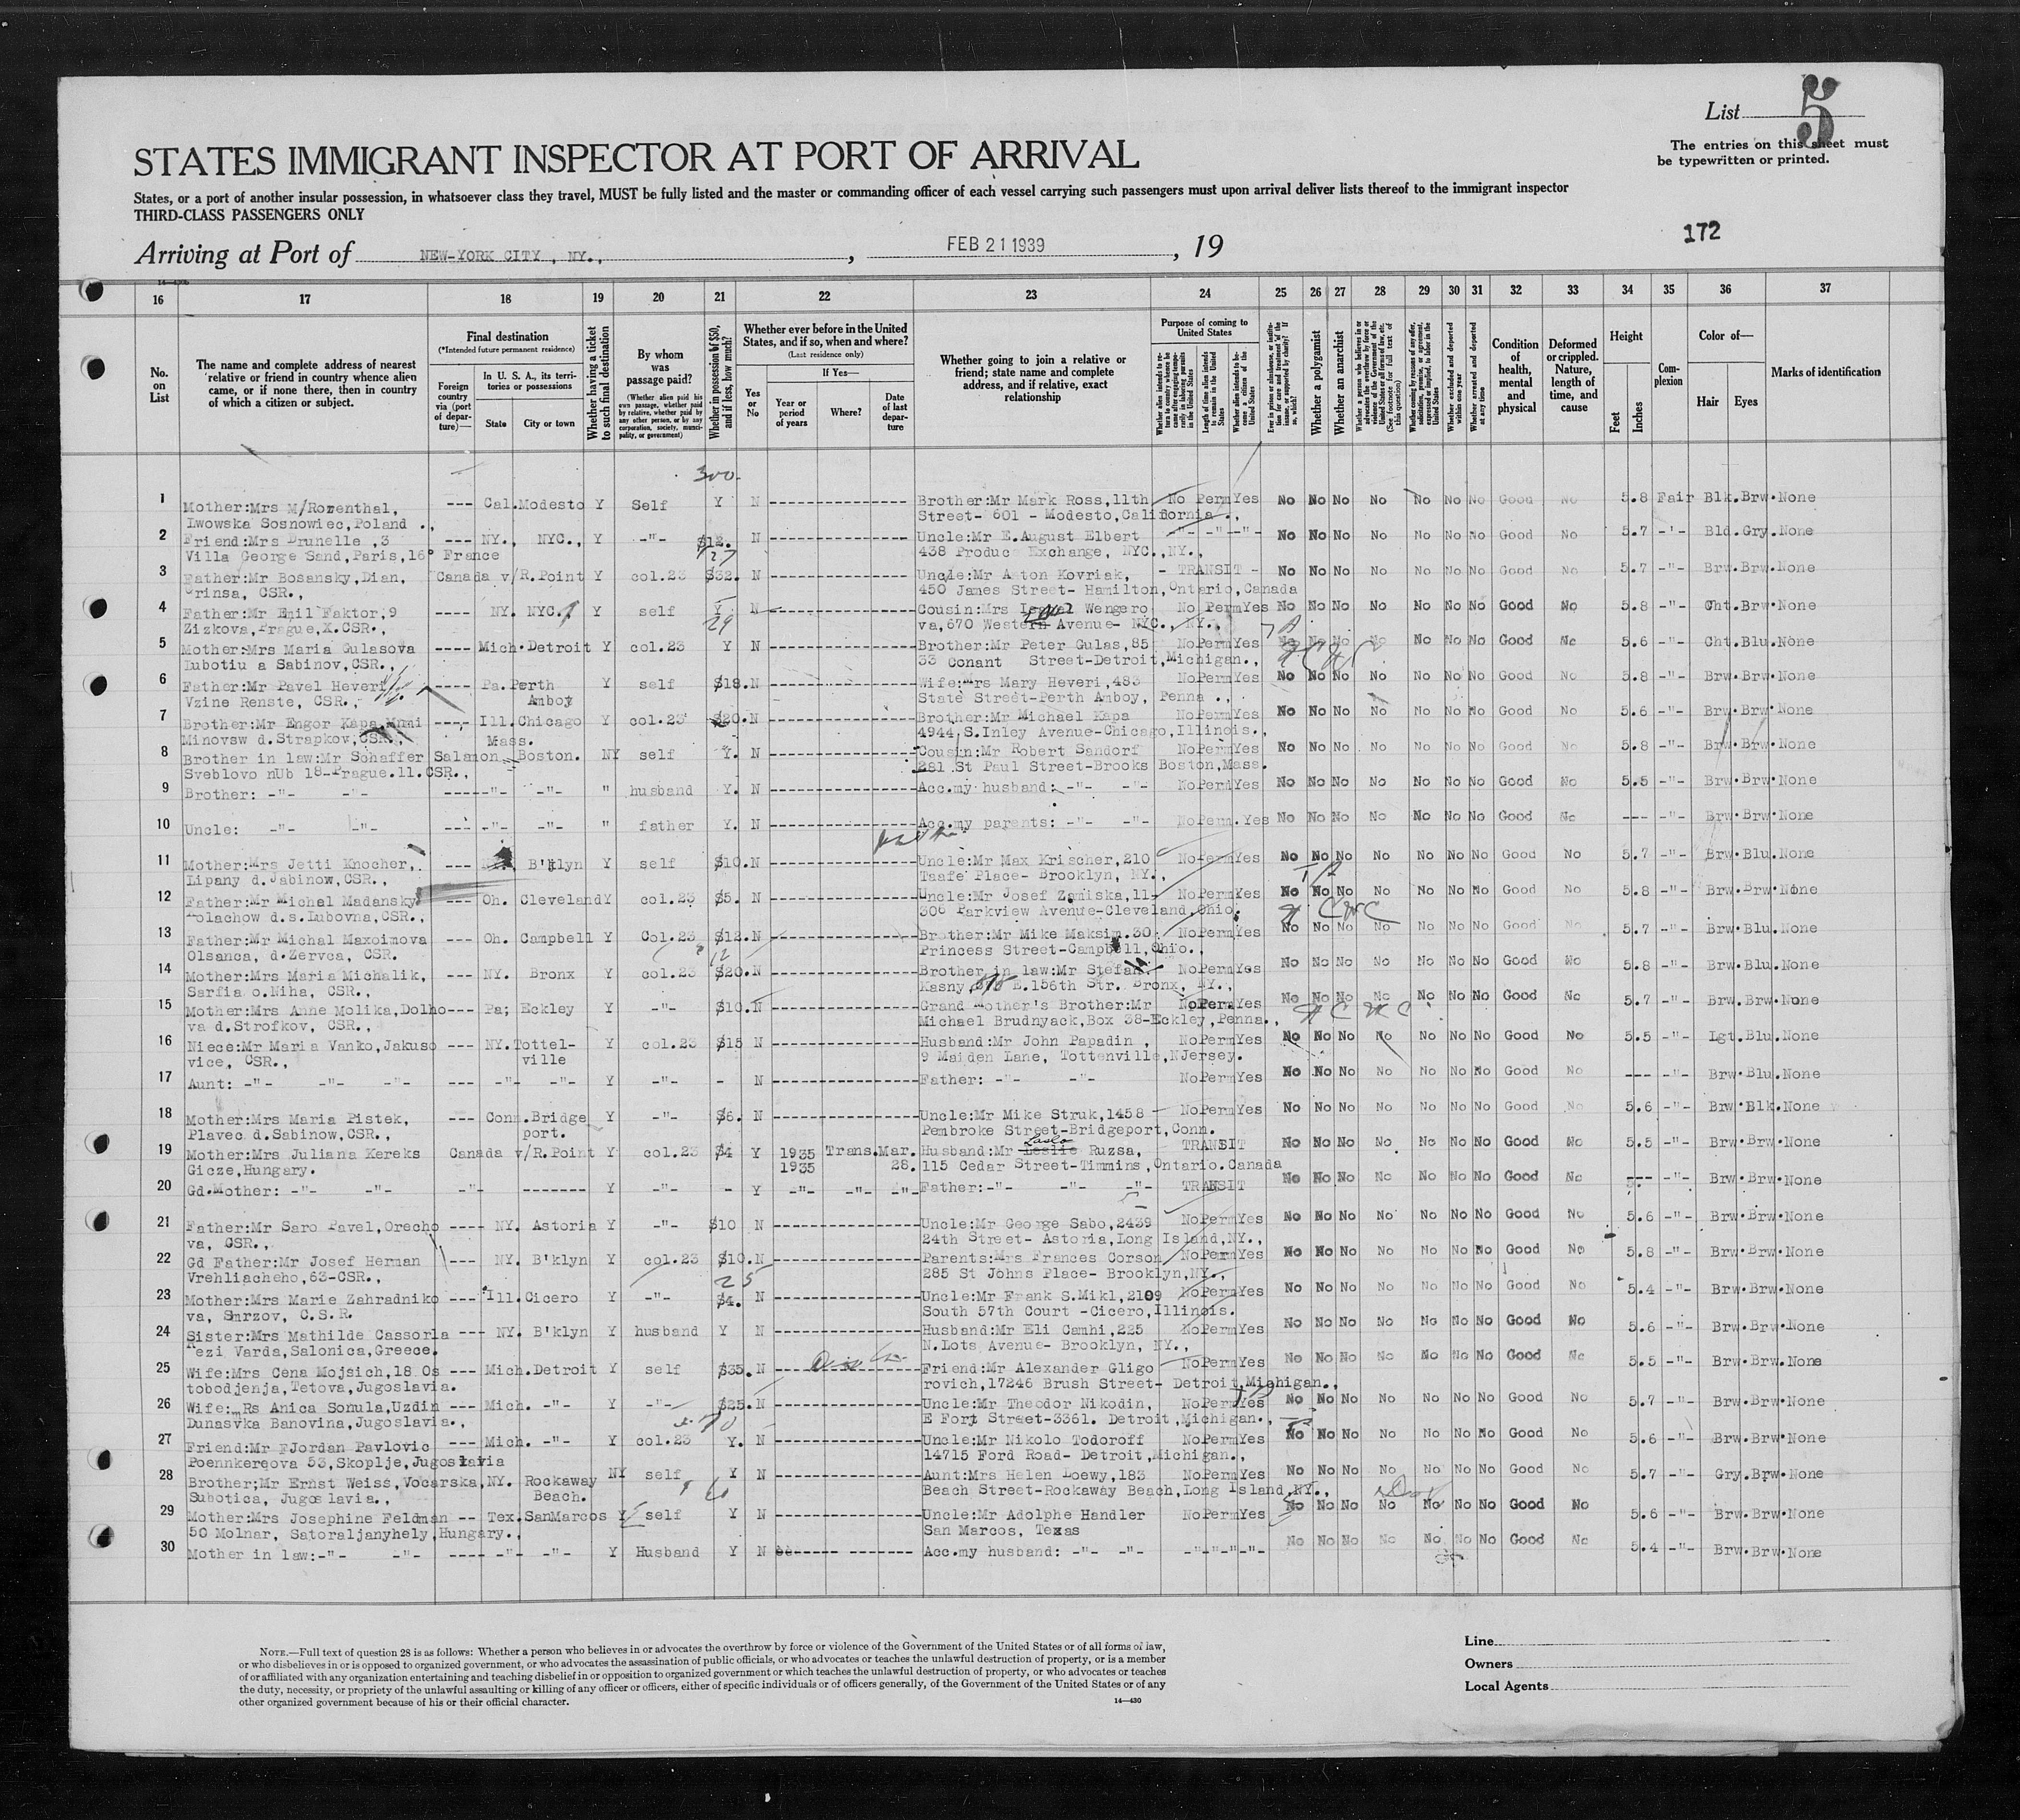 List 5
The entries on this sheet must
be typewritten or printed.
STATES IMMIGRANT INSPECTOR AT PORT OF ARRIVAL
States, or a port of another insular possession, in whatsoever class they travel, MUST be fully listed and the master or commanding officer of each vessel carrying such passengers must upon arrival deliver lists thereof to the immigrant inspector
THIRD-CLASS PASSENGERS ONLY
172
Arriving at Port of NEW-YORK CITY, NY., , FEB 21 1939 , 19
16 17 18 19 20 21 22 23 24 25 26 27 28 29 30 31 32 33 34 35 36 37
No. on List
The name and complete address of nearest relative or friend in country whence alien came, or if none there, then in country of which a citizen or subject.
Final destination
(*Intended future permanent residence)
Foreign country via (port of departure)—
In U. S. A., its territories or possessions
State
City or town
Whether having a ticket to such final destination
By whom was passage paid?
(Whether alien paid his own passage, whether paid by relative, whether paid by any other person, or by any corporation, society, municipality, or government)
Whether in possession of $50, and if less, how much?
Whether ever before in the United States, and if so, when and where?
(Last residence only)
Yes or No
If Yes—
Year or period of years
Where?
Date of last departure
Whether going to join a relative or friend; state name and complete address, and if relative, exact relationship
Purpose of coming to United States
Length of time alien intends to remain in the United States
Whether alien intends to become a citizen of the United States
Whether a polygamist
Whether an anarchist
Whether excluded and deported within one year
Whether arrested and deported at any time
Condition of health, mental and physical
Deformed or crippled. Nature, length of time, and cause
Height
Feet
Inches
Complexion
Color of—
Hair
Eyes
Marks of identification
300
1 Mother:Mrs M/Rozenthal, --- Cal.Modesto Y Self Y N Brother:Mr Mark Ross,11th No Perm Yes No No No No No No No Good No 5.8 Fair Blk.Brw.None
Lwowska Sosnowiec,Poland ., Street- 601 - Modesto,California .,
2 Friend:Mrs Brunelle ,3 --- NY., NYC., Y -"- $12. N Uncle:Mr E.August Elbert -"- -"- -"- No No No No No No No Good No 5.7 -"- Bld.Gry.None
Villa George Sand,Paris,16° France 438 Produce Exchange, NYC.,NY.,
3 Father:Mr Bosansky,Dian, Canada v/R.Point Y col.23 $32. N Uncle:Mr Anton Kovriak, - TRANSIT - No No No No No No No Good No 5.7 -"- Brw.Brw.None
CSR., 450 James Street- Hamilton,Ontario,Canada
4 Father:Mr Emil Faktor,9 ---- NY. NYC. Y self Y N Cousin:Mrs Wengero No Perm Yes No No No No No No No Good No 5.8 -"- Cht.Brw.None
Zizkova,Prague,X.CSR., 29 va,670 Western Avenue- NYC., NY.,
5 Mother:Mrs Maria Gulasova ---- Mich.Detroit Y col.23 Y N Brother:Mr Peter Gulas,85 NoPerm Yes No No No No No No No Good No 5.6 -"- Cht.Blu.None
Lubotiu a Sabinov,CSR., 33 Conant Street-Detroit,Michigan.,
6 Father:Mr Pavel Heveri ---- Pa.Perth Y self $18.N Wife:Mrs Mary Heveri,483 NoPermYes No No No No No No No Good No 5.8 -"- Brw.Brw.None
Vzine Renste, CSR., Amboy State Street-Perth Amboy, Penna .,
7 Brother:Mr Engor Kapa ---- Ill.Chicago Y col.23 $20.N Brother:Mr Michael Kapa NoPermYes No No No No No No No Good No 5.6 -"- Brw.Brw.None
Minovsw d.Strapkov,CSR., Mass. 4944,S.Inley Avenue-Chicago,Illinois.,
8 Brother in law:Mr Schaffer Salamon Boston. NY self Y. N Cousin:Mr Robert Sandorf NoPermYes No No No No No No No Good No 5.8 -"- Brw.Brw.None
Sveblovo nUb 18-Prague.11.CSR., 281 St Paul Street-Brooks Boston,Mass.
9 Brother: -"- -"- -----"- -"- " husband Y. N Acc.my husband: -"- -"- NoPermYes No No No No No No No Good No 5.5 -"- Brw.Brw.None
10 Uncle: -"- -"- --- -"- -"- " father Y. N Acc.my parents: -"- -"- NoPerm.Yes No No No No No No No Good No --- -"- Brw.Brw.None
11 Mother:Mrs Jetti Knocher, --- B'klyn Y self $10.N Uncle:Mr Max Krischer,210 NoPermYes No No No No No No No Good No 5.7 -"- Brw.Blu.None
Lipany d.Jabinow,CSR., Taafe Place- Brooklyn, NY.,
12 Father:Mr Michal Madansky --- Oh. ClevelandY col.23 $5. N Uncle:Mr Josef Zamiska,11- NoPermYes No No No No No No No Good No 5.8 -"- Brw.Brw.None
d.s.Lubovna,CSR., 306 Parkview Avenue-Cleveland,Ohio.
13 Father:Mr Michal Maxoimova --- Oh. Campbell Y Col.23 $12.N Brother:Mr Mike Maksim.30 NoPermYes No No No No No No No Good No 5.7 -"- Brw.Blu.None
Olsanca, d.Zervca, CSR. 12 Princess Street-Campbell,Ohio.,
14 Mother:Mrs Maria Michalik, --- NY. Bronx Y col.23 $20.N Brother in law:Mr Stefan NoPermYes No No No No No No No Good No 5.8 -"- Brw.Blu.None
Sarfia o.Niha, CSR., Kasny E.156th Str. Bronx, NY.,
15 Mother:Mrs Anne Molika,Dolho--- Pa; Eckley Y -"- $10.N Grand Mother's Brother:Mr NoPermYes No No No No No No No Good No 5.7 -"- Brw.Brw.None
va d.Strofkov, CSR., Michael Brudnyack,Box 38-Eckley,Penna.,
16 Niece:Mr Maria Vanko,Jakuso --- NY.Tottel- Y col.23 $15 N Husband:Mr John Papadin , NoPermYes No No No No No No No Good No 5.5 -"- Lgt.Blu.None
vice, CSR., ville 9 Maiden Lane, Tottenville,NJersey.
17 Aunt: -"- -"- -"- --- -"- -"- Y -"- - N Father: -"- -"- NoPermYes No No No No No No No Good No --- -"- Brw.Blu.None
18 Mother:Mrs Maria Pistek, --- Conn.Bridge Y -"- $6. N Uncle:Mr Mike Struk,1458 NoPermYes No No No No No No No Good No 5.6 -"- Brw.Blk.None
Plavec d.Sabinow,CSR., port. Pembroke Street-Bridgeport,Conn.
19 Mother:Mrs Juliana Kereks Canada v/R.Point Y col.23 $4 Y 1935 Trans.Mar. Husband:Mr Leslie Laslo Ruzsa, TRANSIT No No No No No No No Good No 5.5 -"- Brw.Brw.None
Gicze,Hungary. 1935 28. 115 Cedar Street-Timmins,Ontario.Canada
20 Gd.Mother: -"- -"- -"- ------- Y -"- - Y -"- -"- -"- Father:-"- -"- -"- TRANSIT No No No No No No No Good No --- -"- Brw.Brw.None
21 Father:Mr Saro Pavel,Orecho ---- NY. Astoria Y -"- $10 N Uncle:Mr George Sabo,2439 NoPermYes No No No No No No No Good No 5.6 -"- Brw.Brw.None
va, CSR., 24th Street- Astoria,Long Island,NY.,
22 Gd Father:Mr Josef Herman --- NY. B'klyn Y col.23 $10.N Parents:Mrs Frances Corson NoPermYes No No No No No No No Good No 5.8 -"- Brw.Brw.None
Vrehliacheho,63-CSR., 25 285 St Johns Place- Brooklyn,NY.,
23 Mother:Mrs Marie Zahradniko --- Ill.Cicero Y -"- $4. N Uncle:Mr Frank S.Mikl,2109 NoPermYes No No No No No No No Good No 5.4 -"- Brw.Brw.None
va, Smrzov, C.S.R. South 57th Court -Cicero,Illinois.
24 Sister:Mrs Mathilde Cassorla --- NY. B'klyn Y husband Y N Husband:Mr Eli Camhi,225 NoPermYes No No No No No No No Good No 5.6 -"- Brw.Brw.None
ezi Varda,Salonica,Greece. N.Lots Avenue- Brooklyn, NY.,
25 Wife:Mrs Cena Mojsich,18 Os --- Mich.Detroit Y self $35.N Friend:Mr Alexander Gligo NoPermYes No No No No No No No Good No 5.5 -"- Brw.Brw.None
tobodjenja,Tetova,Jugoslavia. rovich,17246 Brush Street- Detroit,Michigan.,
26 Wife: Rs Anica Sonula,Uzdin --- Mich. -"- Y -"- $25.N Uncle:Mr Theodor Nikodin, NoPermYes No No No No No No No Good No 5.7 -"- Brw.Brw.None
Dunasvka Banovina,Jugoslavia., E Fort Street-3361. Detroit,Michigan.,
27 Friend:Mr FJordan Pavlovic --- Mich. -"- Y col.23 Y. N Uncle:Mr Nikolo Todoroff NoPermYes No No No No No No No Good No 5.6 -"- Brw.Brw.None
Poennkereova 53,Skoplje,Jugoslavia 14715 Ford Road- Detroit,Michigan.,
28 Brother;Mr Ernst Weiss,Vocarska,NY. Rockaway NY self Y N Aunt:Mrs Helen Loewy,183 NoPermYes No No No No No No No Good No 5.7 -"- Gry.Brw.None
Subotica, Jugoslavia., Beach. Beach Street-Rockaway Beach,Long Island,NY.,
29 Mother:Mrs Josephine Feldman -- Tex.SanMarcos Y self Y N Uncle:Mr Adolphe Handler NoPermYes No No No No No No No Good No 5.6 -"- Brw.Brw.None
50 Molnar, Satoraljanyhely,Hungary., San Marcos, Texas
30 Mother in law:-"- -"- ---- -"- -"- Y Husband Y N Acc.my husband: -"- -"- -"-"-"-"- No No No No No No No Good No 5.4 -"- Brw.Brw.None
NOTE.—Full text of question 28 is as follows: Whether a person who believes in or advocates the overthrow by force or violence of the Government of the United States or of all forms of law,
or who disbelieves in or is opposed to organized government, or who advocates the assassination of public officials, or who advocates or teaches the unlawful destruction of property, or is a member
of or affiliated with any organization entertaining and teaching disbelief in or opposition to organized government or which teaches the unlawful destruction of property, or who advocates or teaches
the duty, necessity, or propriety of the unlawful assaulting or killing of any officer or officers, either of specific individuals or of officers generally, of the Government of the United States or of any
other organized government because of his or their official character.
14—430
Line
Owners
Local Agents